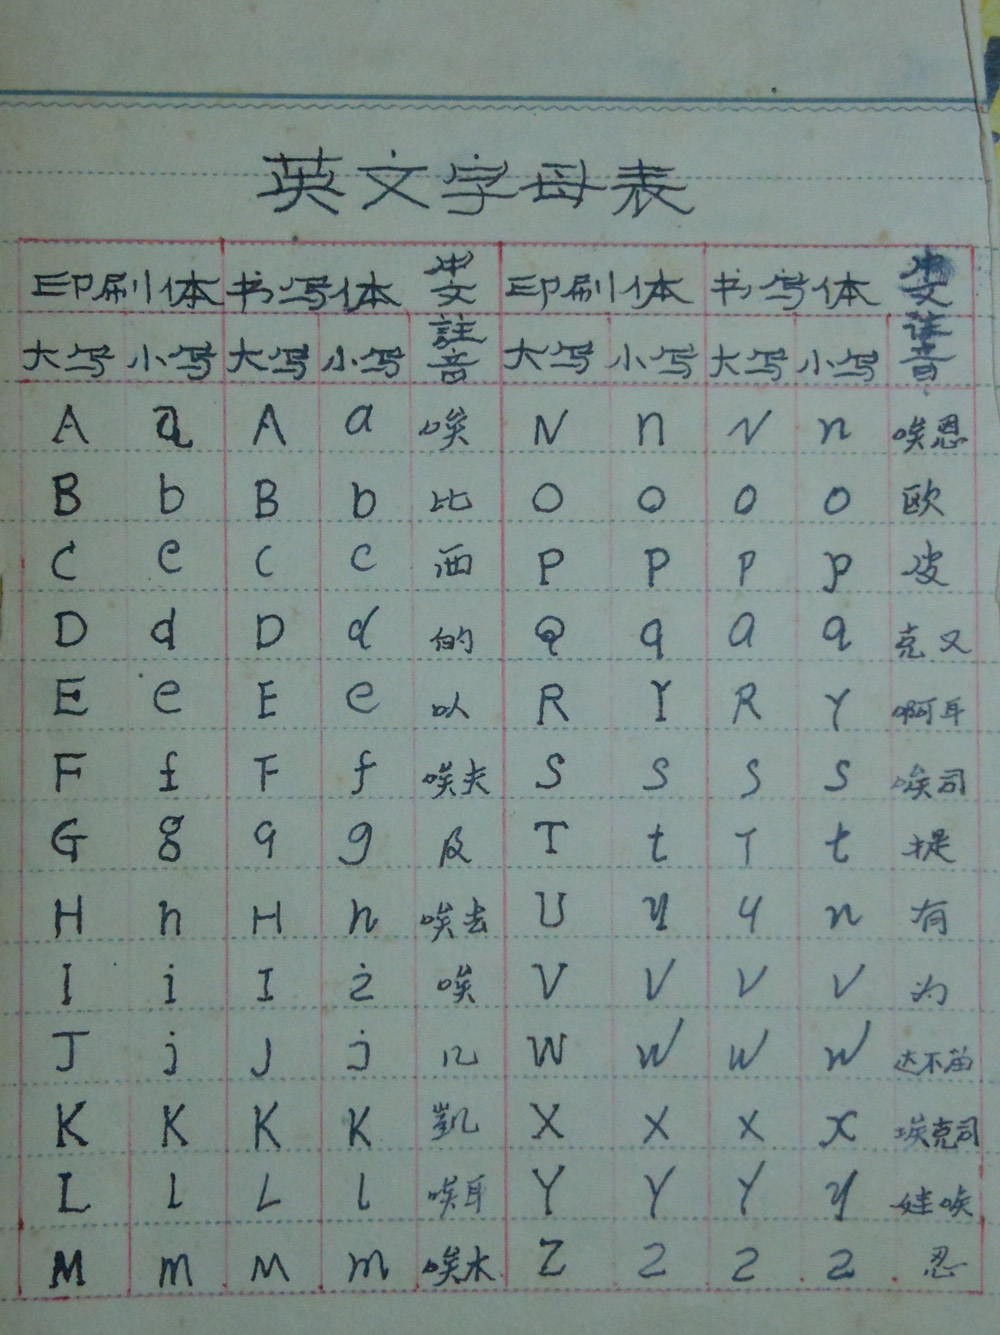 英文字母表
印刷体 书写体 中文註音 印刷体 书写体 中文註音
大写 小写 大写 小写 大写 小写 大写 小写
A a A a 唉 N n N n 唉恩
B b B b 比 O o O o 欧
C c C c 西 P p P p 皮
D d D d 的 Q q Q q 克又
E e E e 以 R r R r 啊耳
F f F f 唉夫 S s S s 唉司
G g G g 及 T t T t 提
H h H h 唉去 U u U u 有
I i I i 唉 V v V v 为
J j J j 几 W w W w 达不留
K K K K 凯 X x X x 埃克司
L l L l 唉耳 Y y Y y 娃唉
M m M m 唉木 Z z Z z 忍